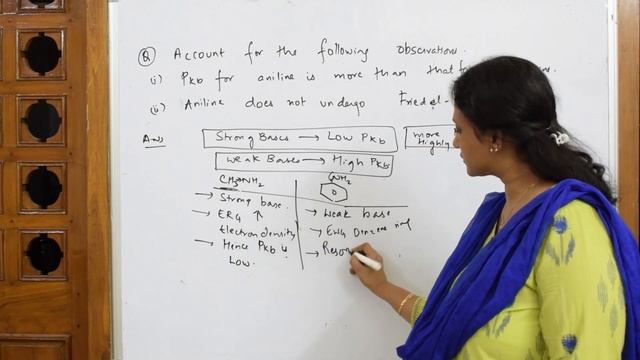 Q Account for the following observation.
(i) Pkb for aniline is more than that
(ii) Aniline does not undergo Friedel-
Ans Strong Bases → Low Pkb more Highly
Weak Bases → High Pkb
CH3NH2 NH2
→ Strong base.
→ Weak base
→ ERG ↑
Electron density
→ EWG Benzene ring
→ Hence Pkb is
Low.
→ Reso